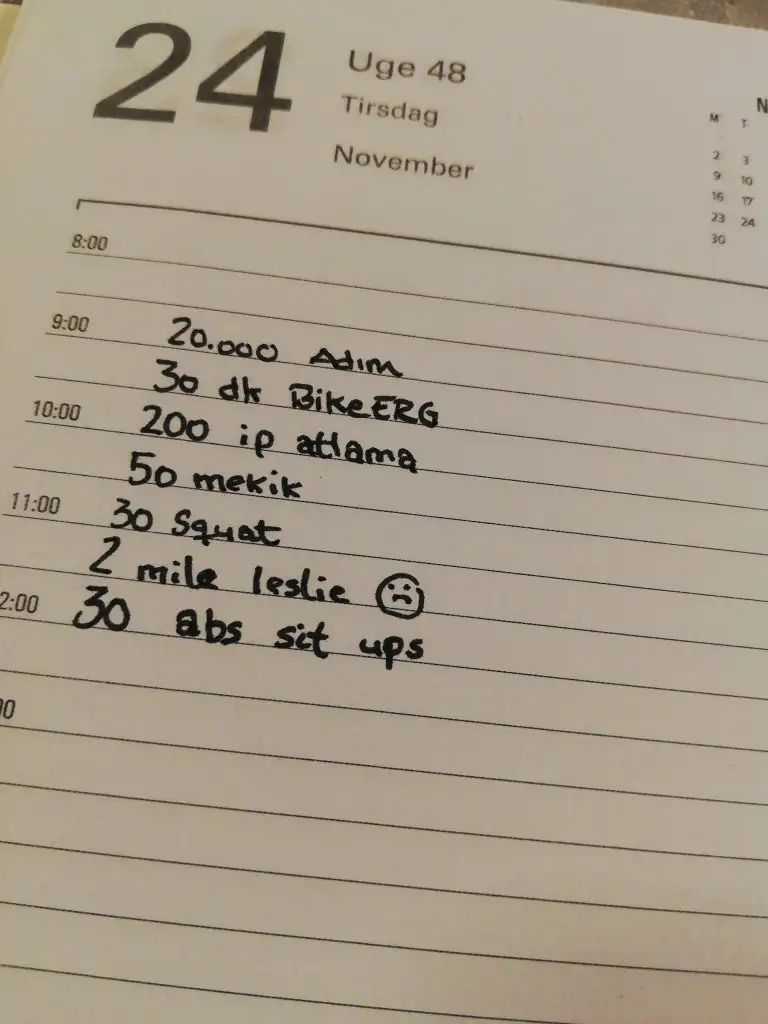 24
Uge 48
Tirsdag
November
N
M T
2 3
9 10
16 17
23 24
30
8:00
9:00
20.000 Adım
30 dk BikeERG
10:00
200 ip atlama
50 mekik
11:00
30 Squat
2 mile leslie ☹
2:00
30 abs sit ups
00